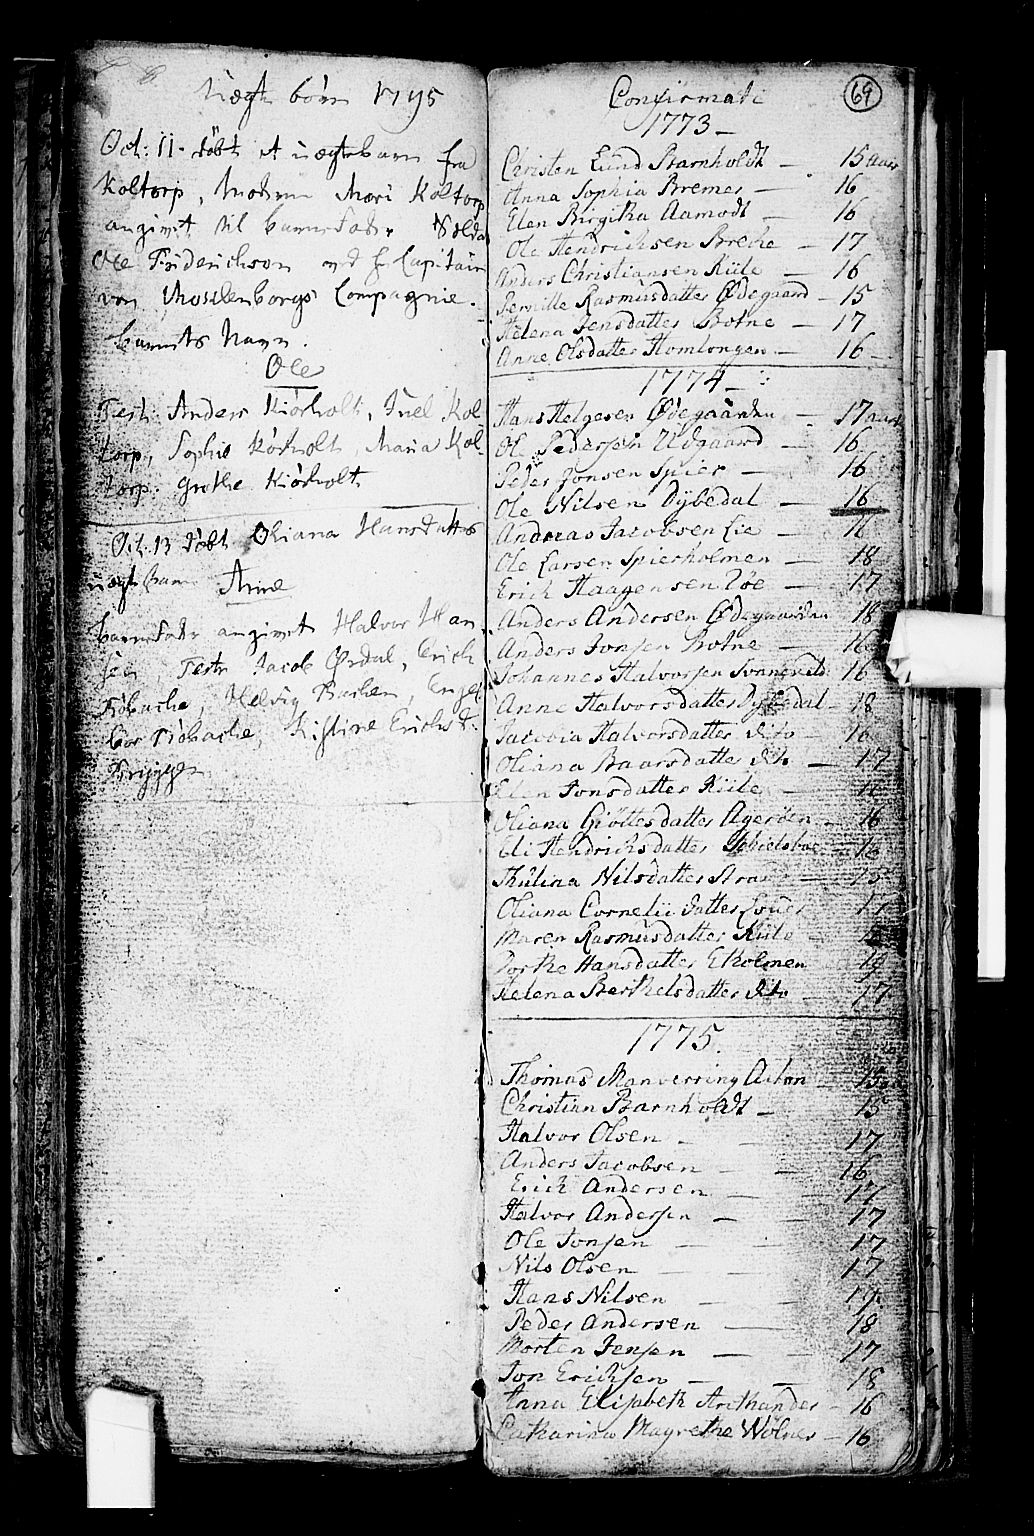 Uægte børn 1795
Oct: 11. døbt et uægte barn fra
Koltorp, Moderen Mari Koltorp
angivet til barnefader Solda
Ole Friderichsen ved Capitain
von Compagnie.
barnets Navn.
Ole
Test: Anders Kiørholt, Juel Kol
torp, Sophie Kiørholt, Maria Kol
torp. Grethe Kiørholt
Oct. 13 døbt Oliana Hansdatters
uægte barn Anne
barnefader angivet Halvor Han
sen, Test: Jacob Ørdal, Erich
Helvig Barken,
Kistine Erichsd.
69
Confirmati
1773
Christen Lund Barnholdt - 15 aar
Anna Sophia Bremer - 16
Elen Birgitha Aamodt - 16
Ole Hendrichsen Breche - 17
Anders Christiansen Kiile - 16
Pernille Rasmusdatter Ødegaard - 15
Helena Jensdatter Botne - 17
Anne Olsdatter Homlongen - 16
1774
Hans Helgesen Ødegaarden - 17 aar
Ol Pedersen Udgaard - 16
Peder Jonsen Spier - 16
Ole Nilsen Dybedal - 16
Andreas Jacobsen Lie - 16
Ole Larsen Spierholmen - 18
Erich Haagensen Røe - 17
Anders Andersen Ødegaarden 18
Anders Jonsen Botne - 16
Johannes Halvorsen 16
Anne Halvorsdatter Dybedal - 18
Jacobia Halvorsdatter dito - 16
Oliana Baarsdatter dito - 17
Elen Jonsdatter Kiile -
Oliana Giøttesdatter Agerøen - 16
Eli Hendrichsdatter
Thulina Nilsdatter 15
Oliana Cornelii datter 17
Maren Rasmusdatter Kiile
Dorthe Hansdatter Ekolmen 19
Helena Berthelsdatter dito - 17
1775.
Thomas Manverring Acton 15 aar
Christian Barnholdt - 15
Halvor Olsen - 17
Anders Jacobsen - 16
Erich Andersen - 17
Halvor Andersen - 17
Ole Jonsen - 17
Nils Olsen - 17
Hans Nilsen - 19
Peder Andersen - 18
Morten Jensen - 17
Jon Erichsen - 18
Anna Elisabeth Arethander - 16
Catharina Magrethe Wølner - 16